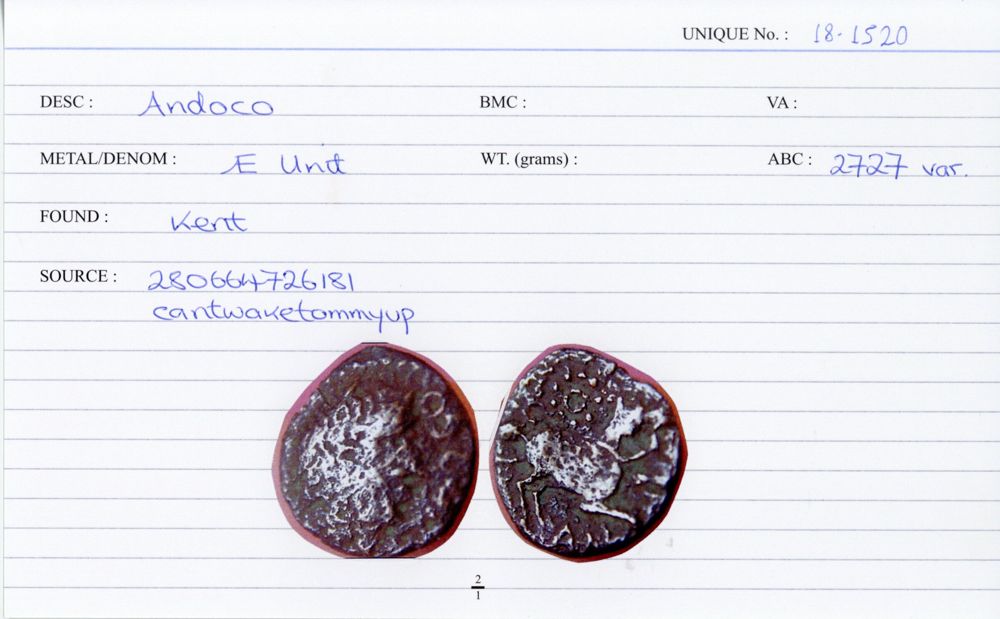 UNIQUE No. : 18-1520
DESC : Andoco BMC : VA :
METAL/DENOM : Æ Unit WT. (grams) : ABC : 2727 var.
FOUND : Kent
SOURCE : 280664726181
cantwaketommyup
2
1